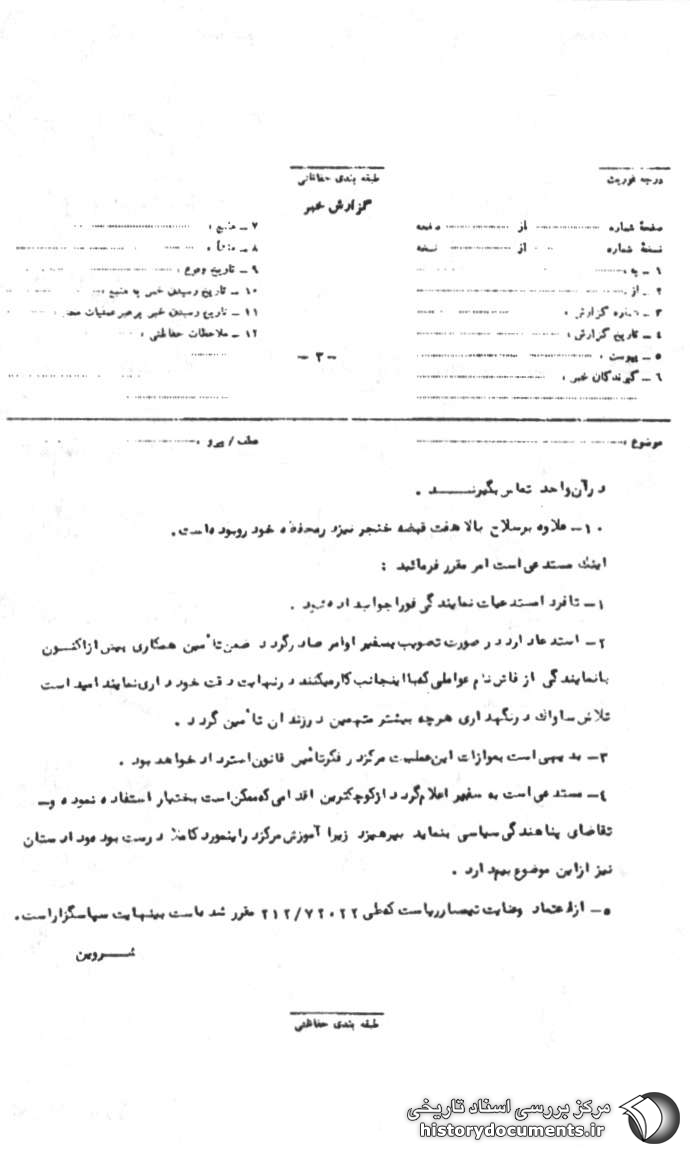 درجه فوریت
طبقه بندی حفاظتی
گزارش خبر
صفحهٔ شماره از صفحه
نسخهٔ شماره از نسخه
۱ ـ به :
۲ ـ از
۳ ـ شماره گزارش :
۴ ـ تاریخ گزارش :
۵ ـ پیوست :
۶ ـ گیرندگان خبر :
۷ ـ منبع :
۸ ـ منشأ :
۹ ـ تاریخ وقوع :
۱۰ ـ تاریخ رسیدن خبر به منبع :
۱۱ ـ تاریخ رسیدن خبر برهبر عملیات
۱۲ ـ ملاحظات حفاظتی :
ـ ۳ ـ
موضوع :
عطف / پیرو :
در آن واحد تماس بگیرنـــد .
۱۰ـ علاوه بر سلاح بالا هفت قبضه خنجر نیز در محفظه خود ربوده است.
اینك مستدعی است امر مقرر فرمائید :
۱ـ تا فردا مستدعیات نمایندگی فورا جواب داده شود .
۲ـ استدعا دارد در صورت تصویب بسفیر اوامر صادر گردد ضمن تأمین همکاری بیش از اکنسون
بانمایندگی از فاش نام عواملی که با اینجانب کار میکنند در نهایت دقت خودداری نمایند امید است
تلاش ساواك در نگهداری هرچه بیشتر متهمین در زندان تأمین گردد .
۳ـ بدیهی است بموازات این عملیات مرکز در فکر تأمین قانون استرداد خواهد بود .
۴ـ مستدعی است به سفیر اعلام گردد از کوچکترین اقدامی که ممکن است بختیار استفاده نموده وـ
تقاضای پناهندگی سیاسی بنماید بپرهیزد زیرا آموزش مرکز در اینمورد کاملا درست بود و دادستان
نیز از این موضوع بیم دارد .
۵ـ از اعتماد وعنایت تیمسار ریاست که طی ۲۱۲/۷۲۰۲۲ مقرر شده است بینهایت سپاسگزار است.
نـــروین
طبقه بندی حفاظتی
مرکز بررسی اسناد تاریخی
historydocuments.ir